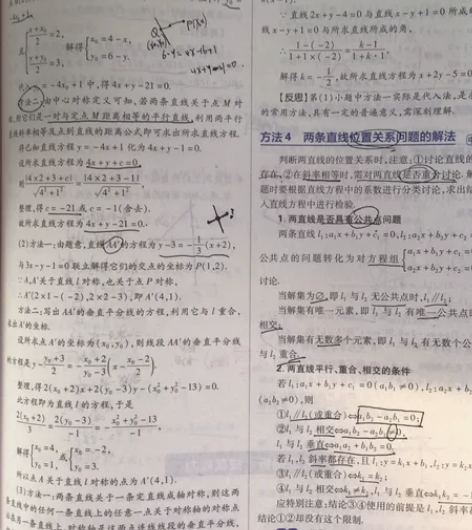 且
{(x+x₀)/2=2,
(y+y₀)/2=3,
解得{x₀=4-x,
y₀=6-y.
=-4x₀+1中,得4x+y-21=0.
方法二:由中心对称定义可知,若两条直线关于点M对
称,则它们是一对与定点M距离相等的平行直线,利用两平行
直线斜率相等及点到直线的距离公式即可求出所求直线方程.
将已知直线方程y=-4x+1化为4x+y-1=0.
设所求直线方程为4x+y+c=0,
则|4×2+3+c|/√(4²+1²)=|4×2+3-1|/√(4²+1²),
整理,得c=-21或c=-1(舍去).
故所求直线方程为4x+y-21=0.
(2)方法一:由题意,直线AA′的方程为y-3=-1/3(x+2),
与3x-y-1=0联立解得它们的交点的坐标为P(1,2).
∵A,A′关于直线l对称,也关于点P对称,
∴A′(2×1-(-2),2×2-3),即A′(4,1).
方法二:写出AA′的垂直平分线的方程,利用它与l重合,
求出A′的坐标.
设所求点A′的坐标为(x₀,y₀),则线段AA′的垂直平分线
的方程是y-(y₀+3)/2=-(x₀+2)/(y₀-3)(x-(x₀-2)/2).
整理,得2(x₀+2)x+2(y₀-3)y-(x₀²+y₀²-13)=0.
此方程即为直线l的方程,于是
2(x₀+2)/3=2(y₀-3)/-1=x₀²+y₀²-13/-1,
解得{x₀=4,
y₀=1,
或{x₀=-2,
y₀=3.
所以点A关于直线l对称的点为A′(4,1).
(3)方法一:两条直线关于一条定直线成轴对称,则这两
条直线中的任何一条直线上的任意一点关于对称轴的对称点
∵直线2x+y-4=0与直线x-y+1=0所成
线x-y+1=0与所求直线所成的角,
∴(1-(-2))/(1+1×(-2))=(k-1)/(1+k·1).
解得k=-1/2,故所求直线方程为x+2y-5=0
【反思】第(1)小题中方法一实际是代入法,是
的常用方法,具有一定的普遍意义,需深刻理解.
方法4 两条直线位置关系问题的解法
判断两直线的位置关系时,注意:①讨论直线的
存在,②在斜率相等时,需对两直线是否重合讨论.解
题时要根据直线方程中的系数进行分类讨论,求出结
入直线方程中进行检验.
1. 两直线是否具有公共点问题
两条直线l₁:a₁x+b₁y+c₁=0,l₂:a₂x+b₂y+c₂
公共点的问题转化为对方程组{a₁x+b₁y+c₁=
a₂x+b₂y+c₂=
讨论.
当解集为∅,即l₁与l₂无公共点时,l₁∥l₂;
当解集有唯一元素,即l₁与l₂有唯一公共点
相交;
当解集有无数多个元素,即l₁与l₂有无数个公
与l₂重合.
2. 两直线平行、重合、相交的条件
若l₁:a₁x+b₁y+c₁=0(a₁b₁≠0),l₂:a₂x+b₂
(a₂b₂≠0),则
①l₁∥l₂(或重合)⇔a₁b₂-a₂b₁=0;
②l₁与l₂相交⇔a₁b₂-a₂b₁≠0,
l₁与l₂垂直⇔a₁a₂+b₁b₂=0.
若l₁,l₂斜率都存在,且l₁:y=k₁x+b₁,l₂:y=k₂
③l₁∥l₂(或重合)⇔k₁=k₂;
④l₁与l₂相交⇔k₁≠k₂,l₁与l₂垂直⇔k₁k₂=-
应特别注意:结论③④使用的前提是l₁,l₂斜率
结论①②却没有这个限制.